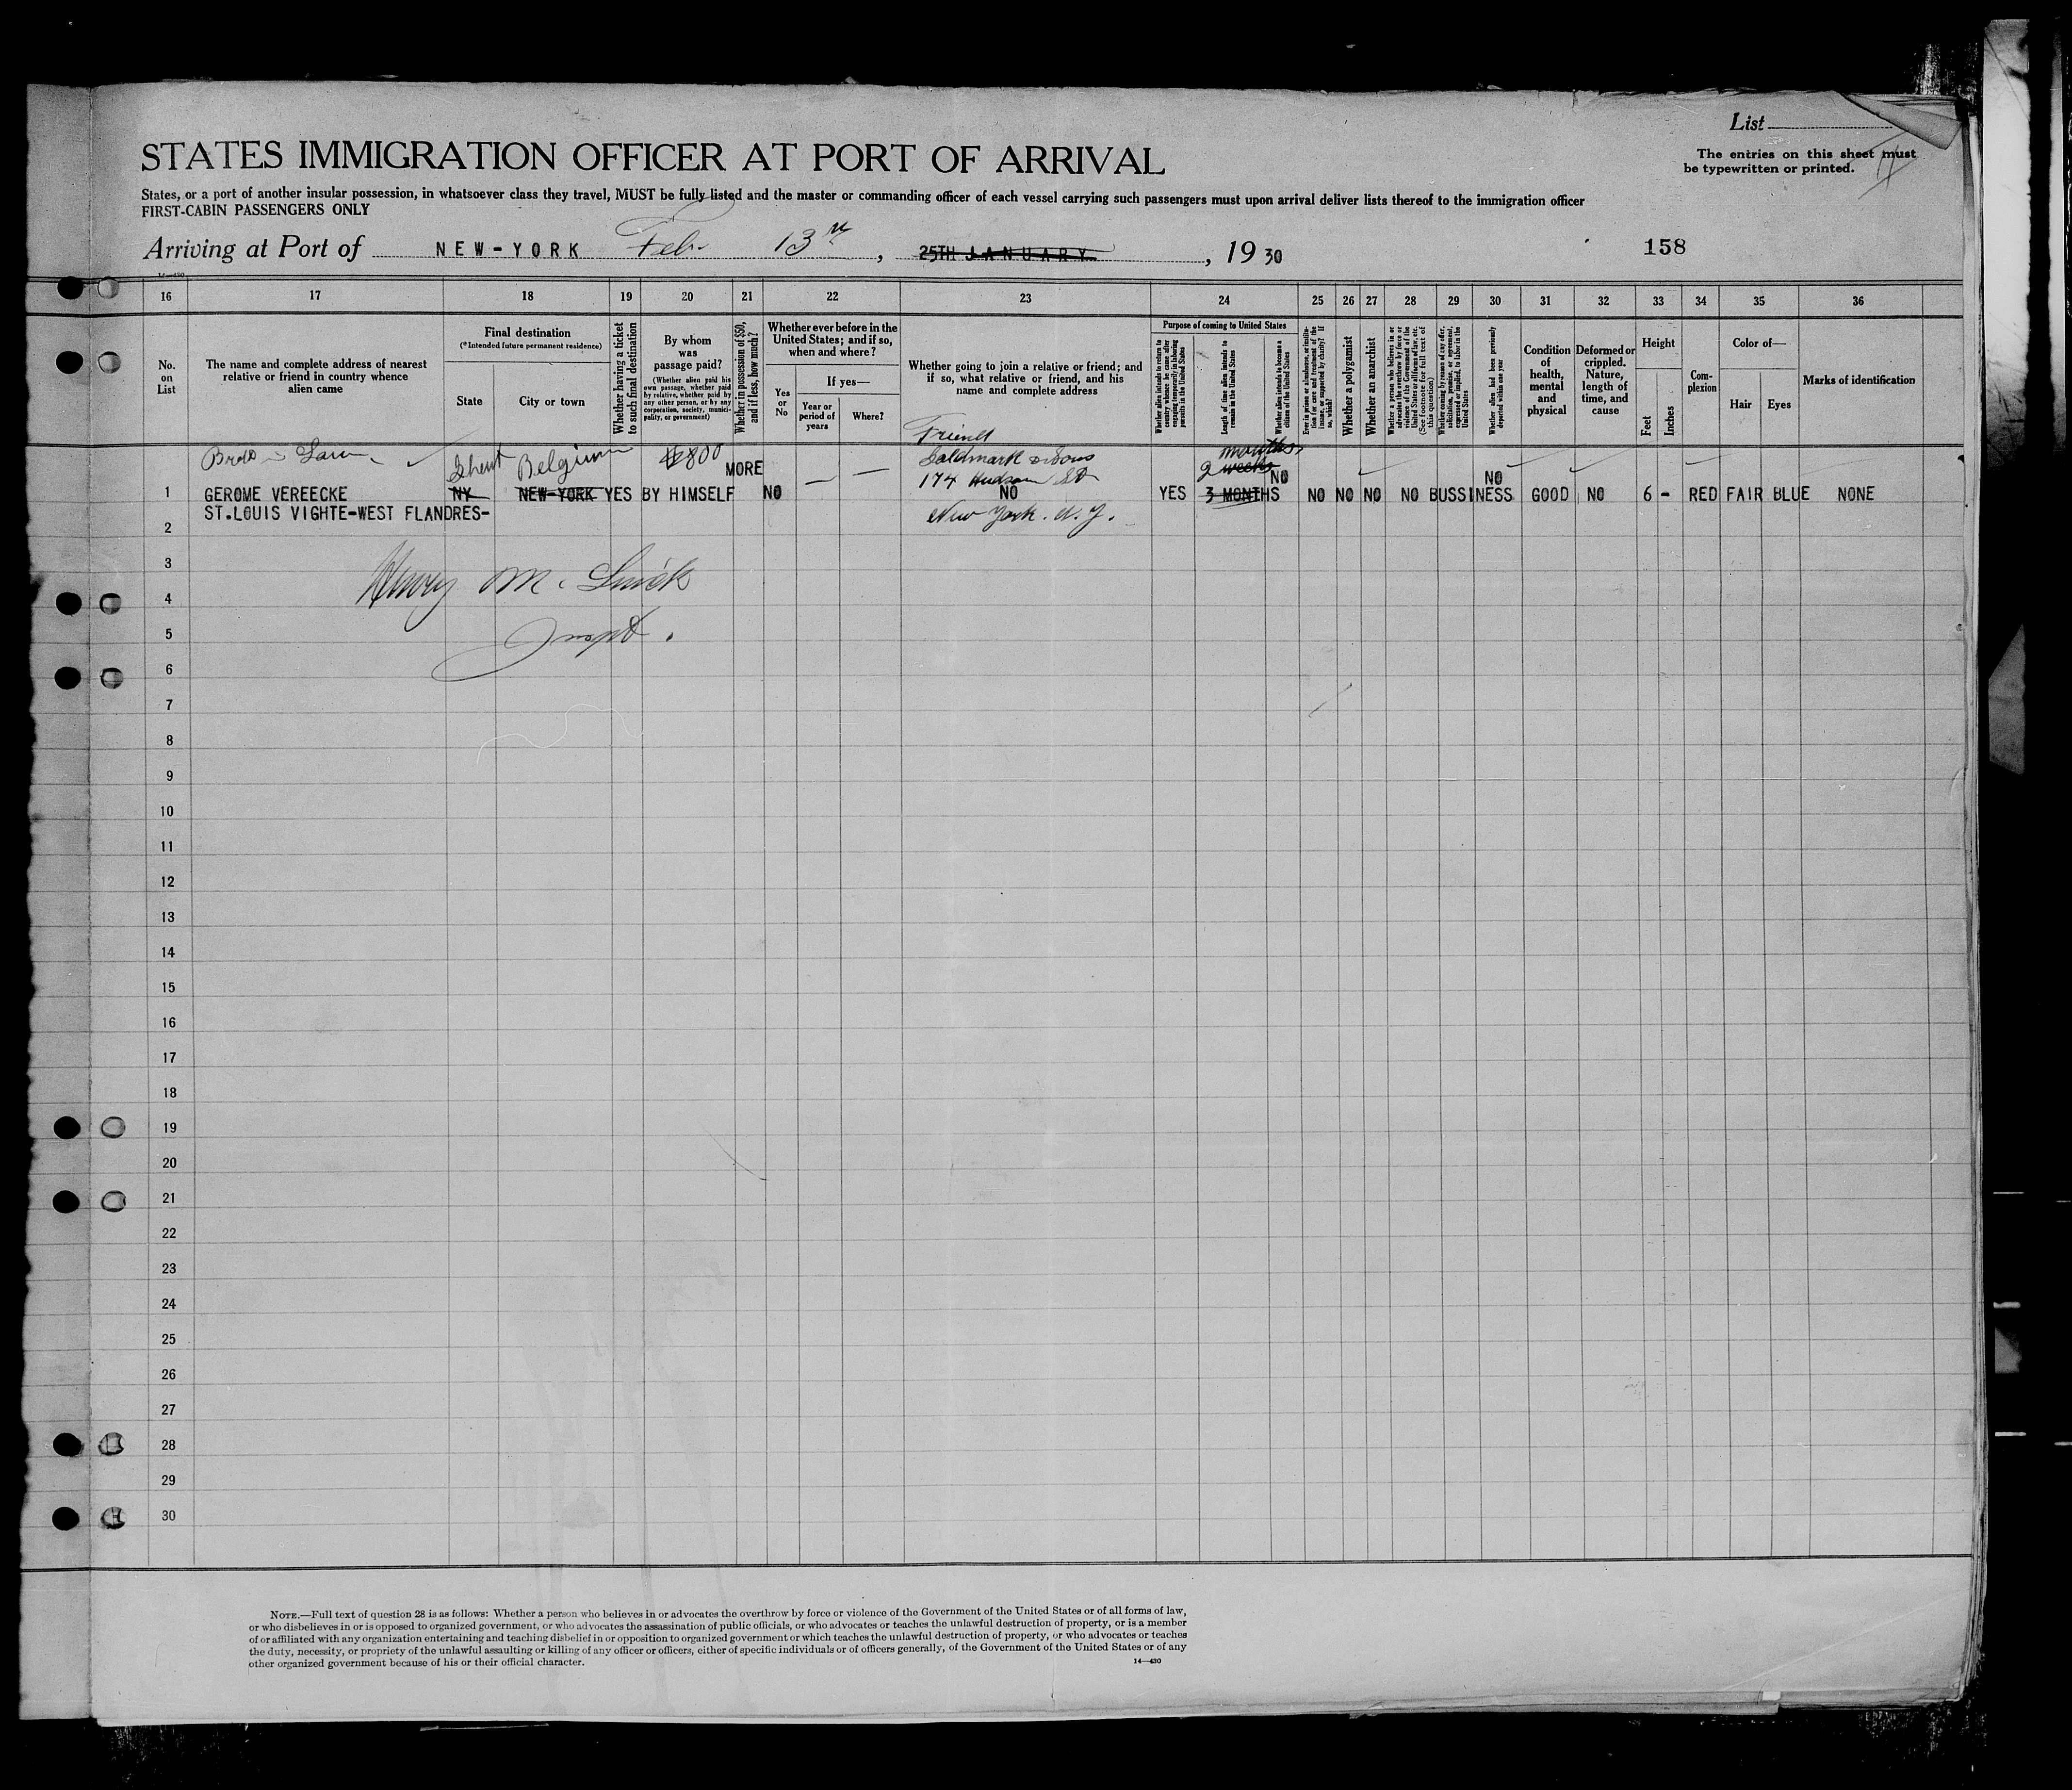 List
The entries on this sheet must
be typewritten or printed.
STATES IMMIGRATION OFFICER AT PORT OF ARRIVAL
States, or a port of another insular possession, in whatsoever class they travel, MUST be fully listed and the master or commanding officer of each vessel carrying such passengers must upon arrival deliver lists thereof to the immigration officer
FIRST-CABIN PASSENGERS ONLY
Arriving at Port of NEW-YORK Feb. 13th, 25TH JANUARY, 19 30
158
14—430
16 17 18 19 20 21 22 23 24 25 26 27 28 29 30 31 32 33 34 35 36
No.
on
List
The name and complete address of nearest
relative or friend in country whence
alien came
Final destination
(*Intended future permanent residence)
State
City or town
Whether having a ticket
to such final destination
By whom
was
passage paid?
(Whether alien paid his
own passage, whether paid
by relative, whether paid by
any other person, or by any
corporation, society, munici-
pality, or government)
Whether in possession of $50,
and if less, how much?
Whether ever before in the
United States; and if so,
when and where?
Yes
or
No
If yes—
Year or
period of
years
Where?
Whether going to join a relative or friend; and
if so, what relative or friend, and his
name and complete address
Purpose of coming to United States
Whether alien intends to return to
country whence he came after
engaging temporarily in laboring
pursuits in the United States
Length of time alien intends to
remain in the United States
Whether alien intends to become a
citizen of the United States
Ever in prison or almshouse, or institu-
tion for care and treatment of the
insane, or supported by charity? If
so, which?
Whether a polygamist
Whether an anarchist
Whether a person who believes in or
advocates the overthrow by force or
violence of the Government of the
United States or all forms of law, etc.
(See footnote for full text of
this question)
Whether coming by reason of any offer,
solicitation, promise, or agreement,
expressed or implied, to labor in the
United States
Whether alien had been previously
deported within one year
Condition
of
health,
mental
and
physical
Deformed or
crippled.
Nature,
length of
time, and
cause
Height
Feet
Inches
Com-
plexion
Color of—
Hair
Eyes
Marks of identification
Friend
Ghent Belgium $800 MORE
Goldmark & Sons
months
2 weeks NO
174 Hudson St
NO
1 GEROME VEREECKE NY NEW-YORK YES BY HIMSELF NO — — NO YES 3 MONTHS NO NO NO NO BUSSINESS GOOD NO 6 - RED FAIR BLUE NONE
ST.LOUIS VIGHTE-WEST FLANDRES-
New York. N.Y.
2
3
Henry M.
4
5
Inspt.
6
7
8
9
10
11
12
13
14
15
16
17
18
19
20
21
22
23
24
25
26
27
28
29
30
NOTE.—Full text of question 28 is as follows: Whether a person who believes in or advocates the overthrow by force or violence of the Government of the United States or of all forms of law,
or who disbelieves in or is opposed to organized government, or who advocates the assassination of public officials, or who advocates or teaches the unlawful destruction of property, or is a member
of or affiliated with any organization entertaining and teaching disbelief in or opposition to organized government or which teaches the unlawful destruction of property, or who advocates or teaches
the duty, necessity, or propriety of the unlawful assaulting or killing of any officer or officers, either of specific individuals or of officers generally, of the Government of the United States or of any
other organized government because of his or their official character.
14—430